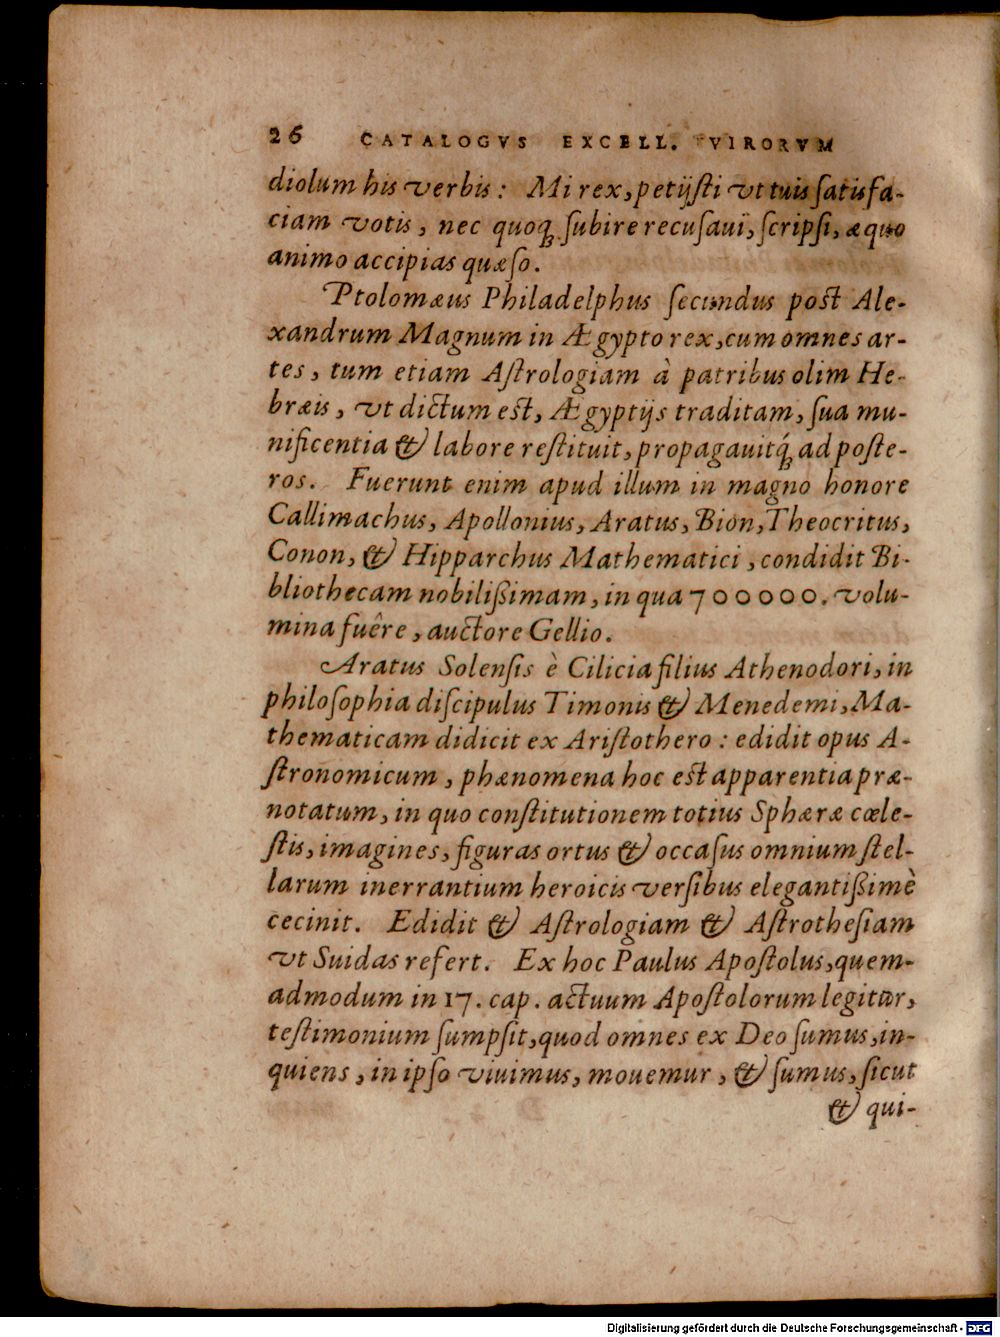 26 CATALOGVS EXCELL. VIRORVM
diolum his verbis: Mi rex, petijſti vt tuis ſatisfa-
ciam votis, nec quoq; ſubire recuſaui, ſcripſi, æquo
animo accipias quæſo.
Ptolomæus Philadelphus ſecundus poſt Ale-
xandrum Magnum in Ægypto rex, cum omnes ar-
tes, tum etiam Aſtrologiam à patribus olim He-
bræis, vt dictum eſt, Ægyptijs traditam, ſua mu-
nificentia & labore reſtituit, propagauitq́; ad poſte-
ros. Fuerunt enim apud illum in magno honore
Callimachus, Apollonius, Aratus, Bion, Theocritus,
Conon, & Hipparchus Mathematici, condidit Bi-
bliothecam nobilißimam, in qua 700000. volu-
mina fuêre, auctore Gellio.
Aratus Solenſis è Cilicia filius Athenodori, in
philoſophia diſcipulus Timonis & Menedemi, Ma-
thematicam didicit ex Ariſtothero: edidit opus A-
ſtronomicum, phænomena hoc eſt apparentia præ-
notatum, in quo conſtitutionem totius Sphæræ cœle-
ſtis, imagines, figuras ortus & occaſus omnium ſtel-
larum inerrantium heroicis verſibus elegantißimè
cecinit. Edidit & Aſtrologiam & Aſtrotheſiam
vt Suidas refert. Ex hoc Paulus Apoſtolus, quem-
admodum in 17. cap. actuum Apoſtolorum legitur,
teſtimonium ſumpſit, quod omnes ex Deo ſumus, in-
quiens, in ipſo viuimus, mouemur, & ſumus, ſicut
& qui-
Digitalisierung gefördert durch die Deutsche Forschungsgemeinschaft - DFG